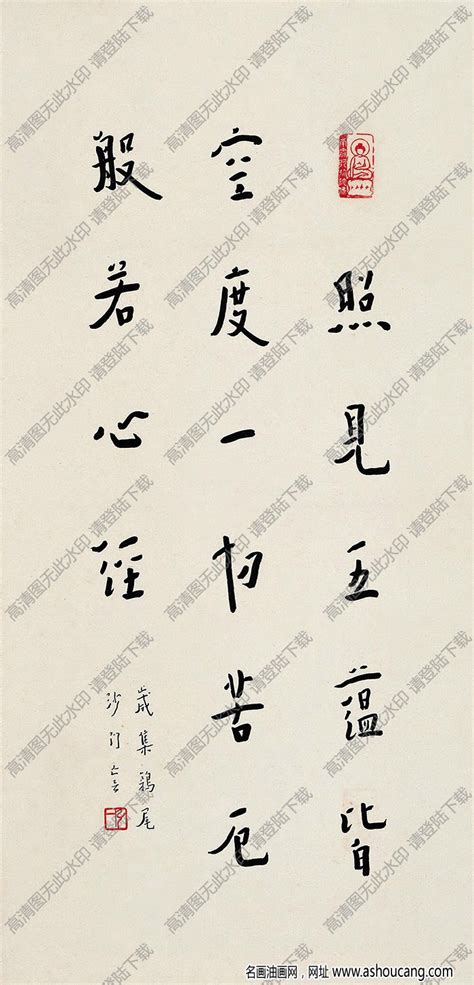 照見五蘊皆
空度一切苦厄
般若心經
歲集鶉尾
沙門亡言
高清图无此水印 请登陆下载
名画油画网，网址 www.ashoucang.com